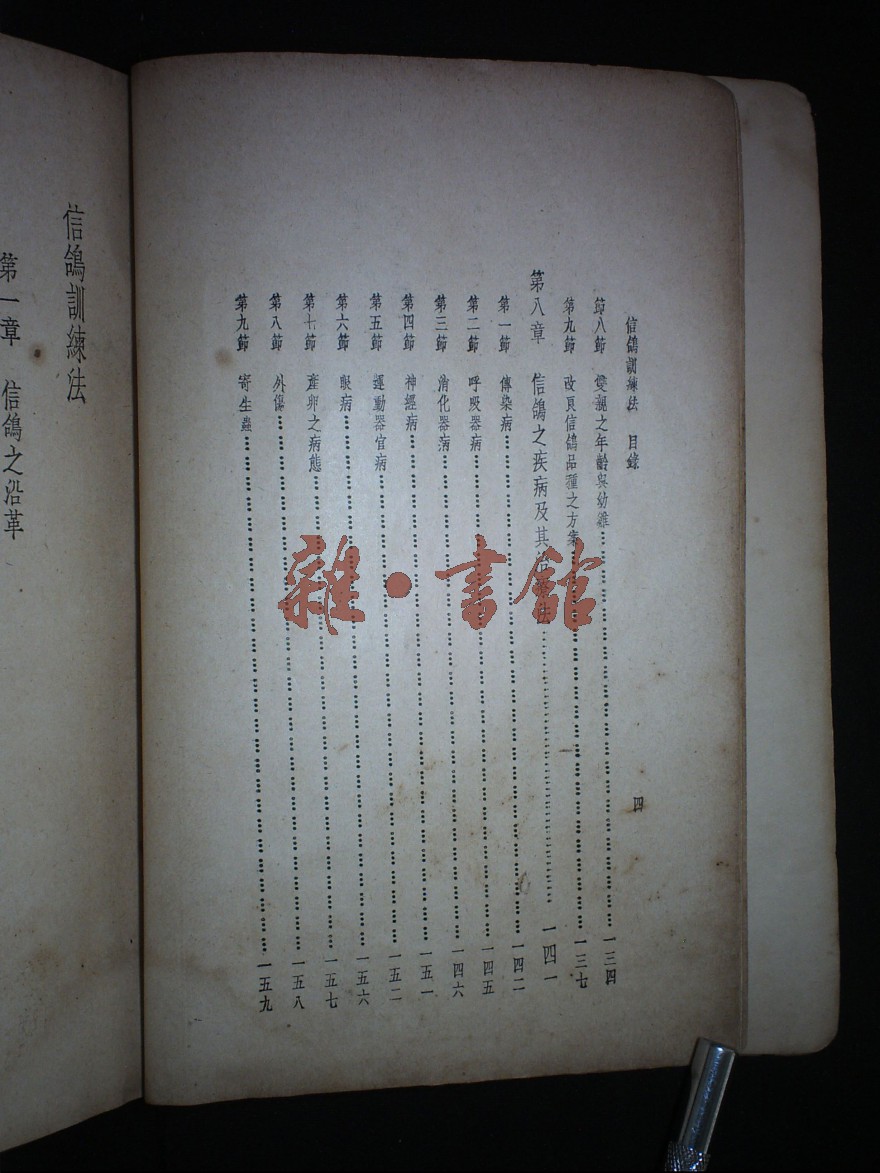 信鴿訓練法 目錄 四
節八節 雙親之年齡與幼雛 一三四
第九節 改良信鴿品種之方案 一三七
第八章 信鴿之疾病及其治療法 一四一
第一節 傳染病 一四二
第二節 呼吸器病 一四五
第三節 消化器病 一四六
第四節 神經病 一五一
第五節 運動器官病 一五二
第六節 眼病 一五六
第七節 產卵之病態 一五七
第八節 外傷 一五八
第九節 寄生蟲 一五九
信鴿訓練法
第一章 信鴿之沿革
雜·書館